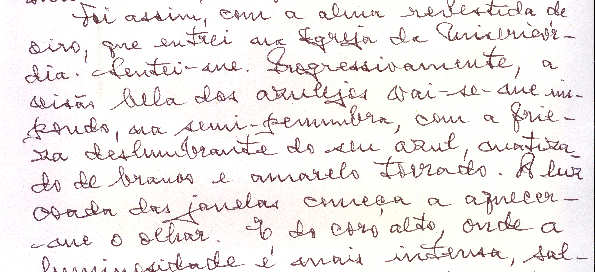 Foi assim, com a alma revestida de
oiro, que entrei na Igreja da Misericór-
dia. Sentei-me. Progressivamente, a
visão bela dos azulejos vai-se-me im-
pondo, na semi-penumbra, com a frie-
za deslumbrante do seu azul, matiza-
do de branco e amarelo torrado. A luz
coada das janelas começa a aquecer-
-me o olhar. E do coro alto, onde a
luminosidade é mais intensa, sal-